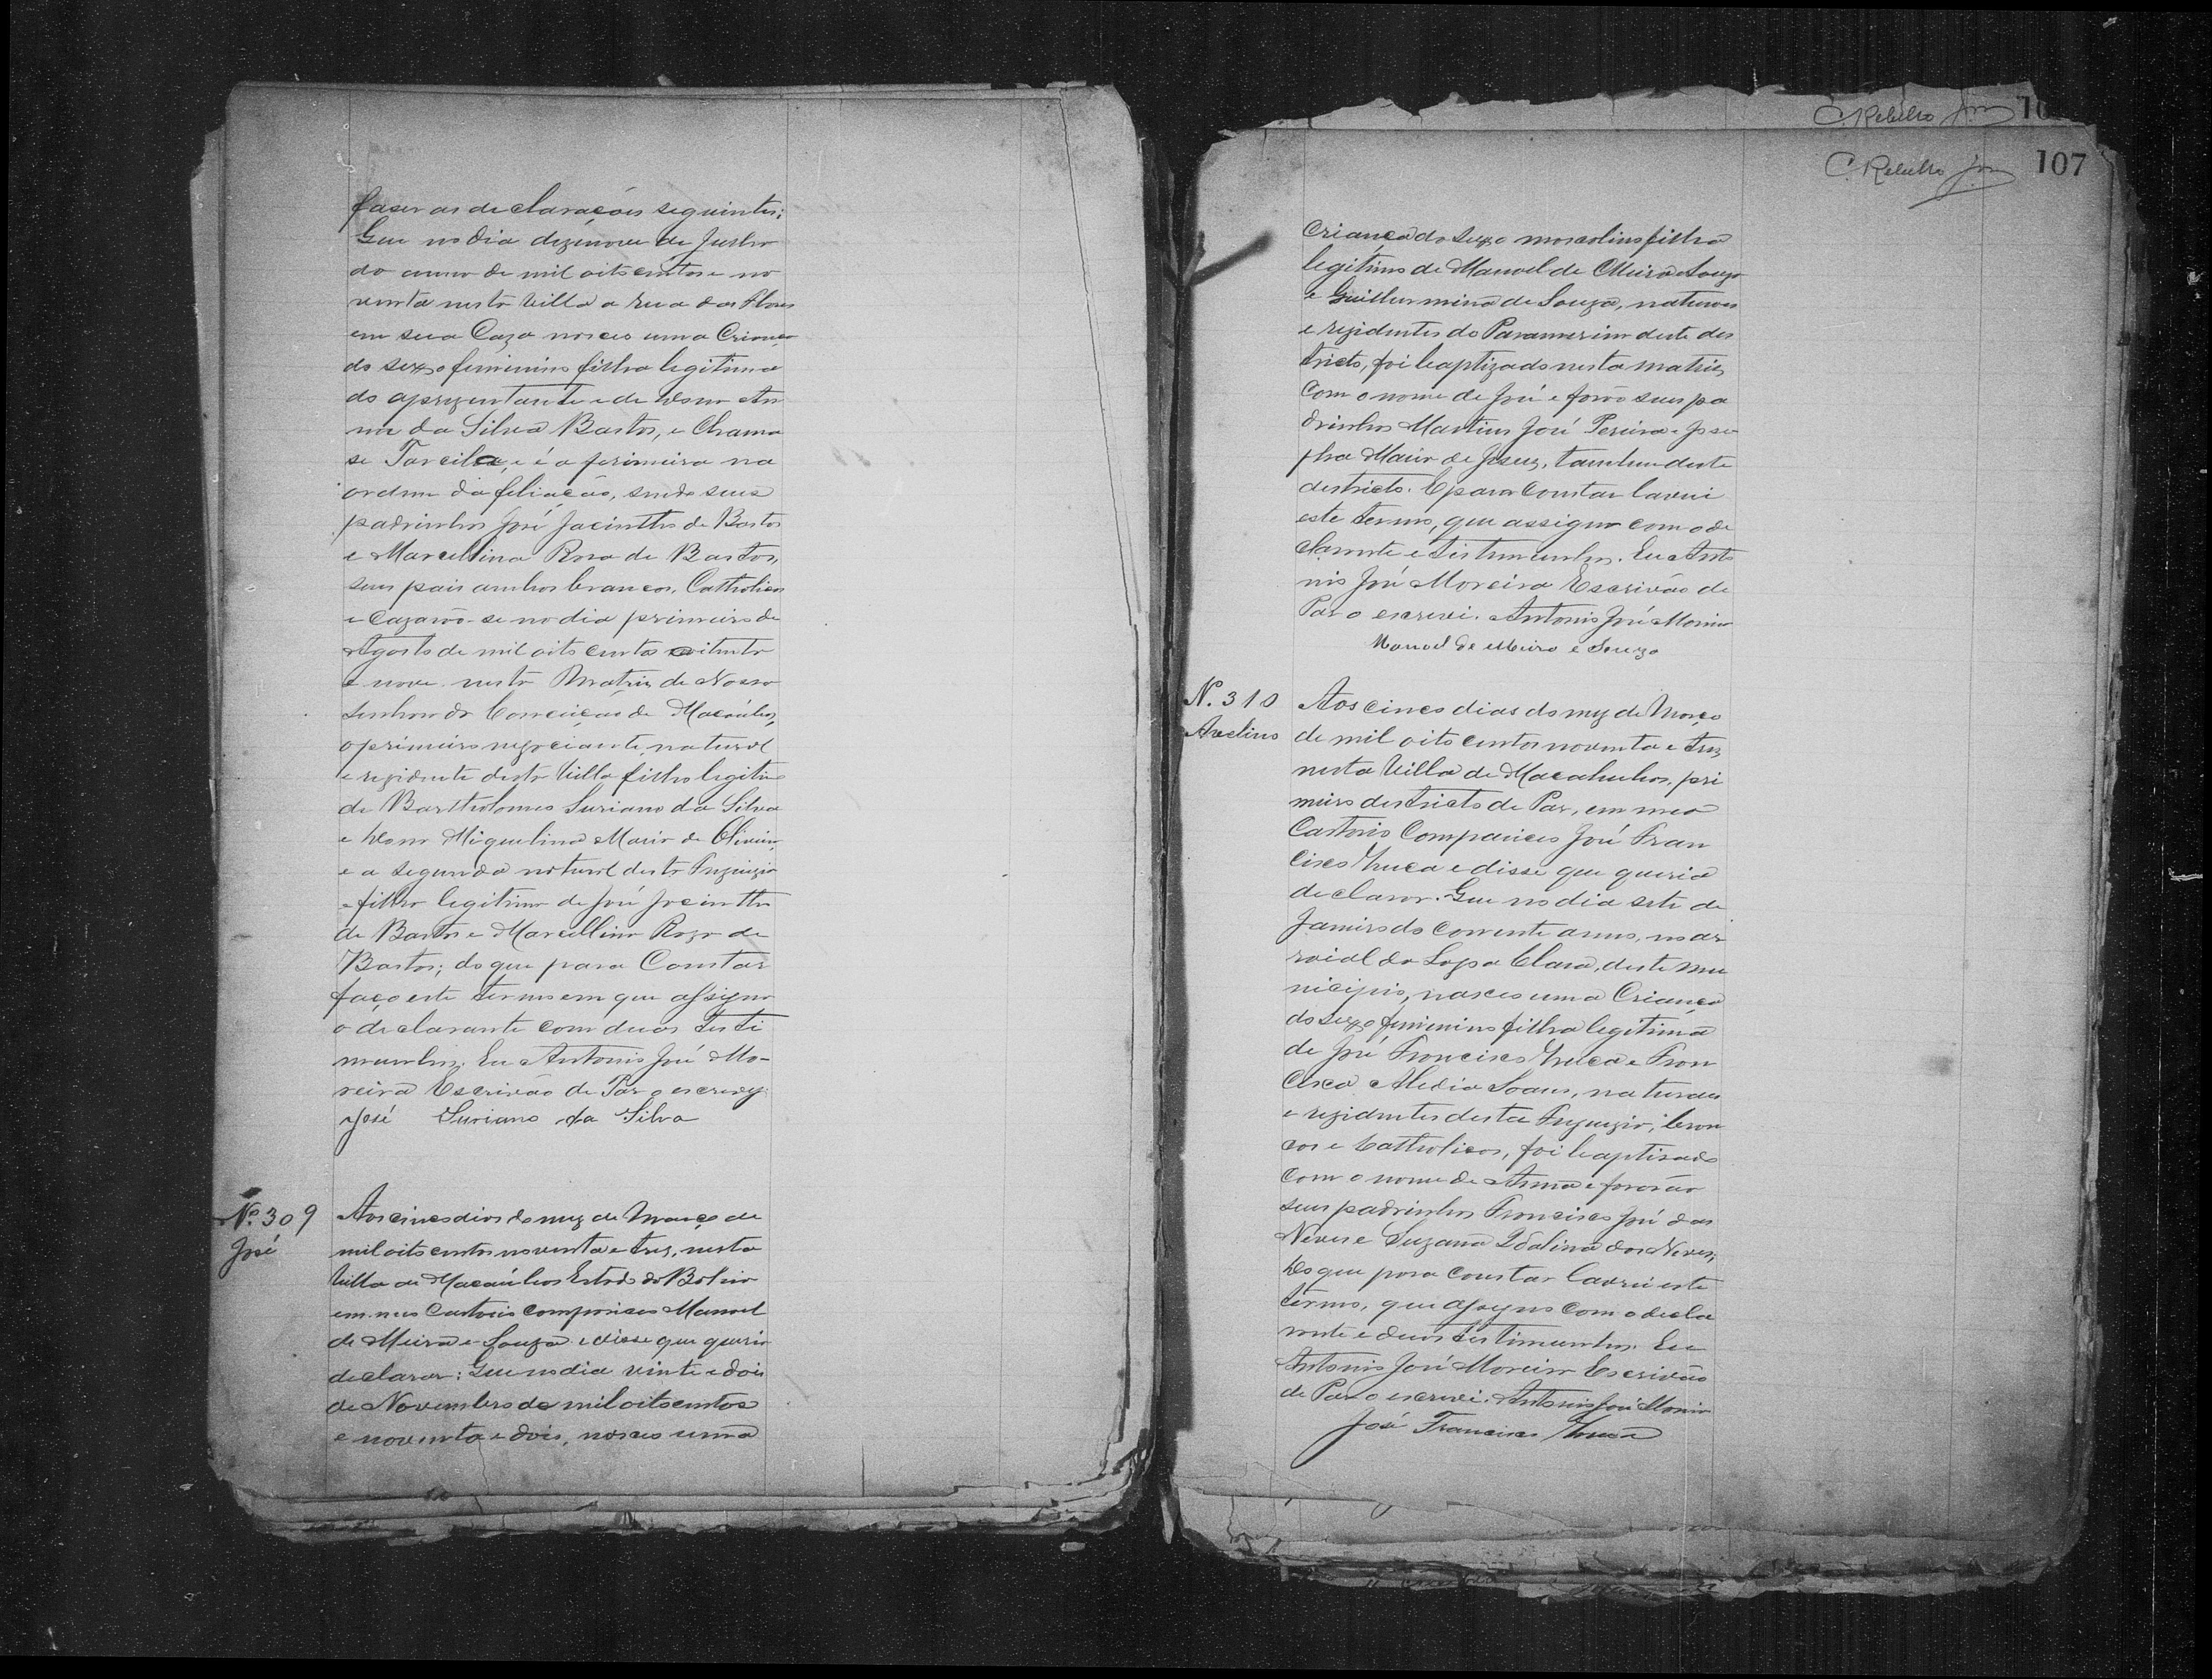 faser as declaraçoes seguintes;
Que no dia dezenove de Julho
do anno de mil oitocentos e no
venta nesta Villa a rua das Flores
em sua Caza nasceo uma Criança
do sexo feminino filha legitima
do aprezentante e de Dona An
na da Silva Bastos, e Chama
se Tarcila, e é a primeira na
ordem da filiação, sendo seus
padrinhos José Jacintho de Bastos
e Marcellina Rosa de Bastos,
seus pais ambos brancos, Catholicos
e Cazarão-se no dia primeiro de
Agosto de mil oito centos e oitenta
e nove nesta Matriz de Nossa
Senhora da Conceiçao de Macaúbas,
o primeiro negociante, natural
e rezidente desta Villa filho legitimo
de Bartholomeo Suriano da Silva
e Dona Miguelina Maria de Oliveira,
e a segunda natural desta Freguezia
e filha legitima de José Jacintho
de Bastos e Marcellina Roza de
Bastos; do que para Constar
faço este termo em que assigna
o declarante com duas teste
munhas. Eu Antonio José Mo-
reira Escrivão de Paz o escrevy.
José Suriano da Silva
Nº. 309
José
Aos cinco dias do mez de Março de
mil oito centos noventa e trez, nesta
Villa de Macaúbas Estado da Bahia
em meo Cartorio compareceo Manoel
de Meira e Souza e disse que queria
declarar: Que no dia vinte e dois
de Novembro de mil oito centos
e noventa e dois, nasceo uma
C. Rebello Jor
C. Rebello Jor 107
Criança do sexo mascolino filha
legitimo de Manoel de Meira e Souza
e Guilhermina de Souza, naturaes
e rezidentes do Paramerim deste des
tricto, foi baptizado nesta matriz
com o nome de José e forão seus pa
drinhos Martins José Pereira e Jose
pha Maria de Jesus, tambem deste
destricto. E para Constar lavrei
este termo, que assigna com o de
clarante e testemunhas. Eu Anto
nio José Moreira Escrivão de
Paz o escrevi. Antonio José Moreira
Manoel de Meira e Souza
N. 310
Avelino
Aos cinco dias do mez de Março
de mil oito centos noventa e trez,
nesta Villa de Macahubas, pri
meiro destricto de Paz, em meo
Cartorio Compareceo José Fran
cisco e disse que queria
declarar. Que no dia sete de
Janeiro do Corrente anno, no ar
raial da Lagoa Clara, deste mu
nicipio, nasceo uma Criança
do sexo feminino filha legitima
de José Francisco e Fran
cisca Soares, naturaes
e rezidentes desta Freguezia, bran
cos e Catholicos, foi baptisado
com o nome de Anna e forão
seus padrinhos Francisco José das
Neves e Suzana Idalina das Neves;
Do que para constar lavrei este
termo, que assigno com o decla
rante e duas testimunhas. Eu
Antonio José Moreira Escrivão
de Paz o escrevi. Antonio José Moreira
José Francisco